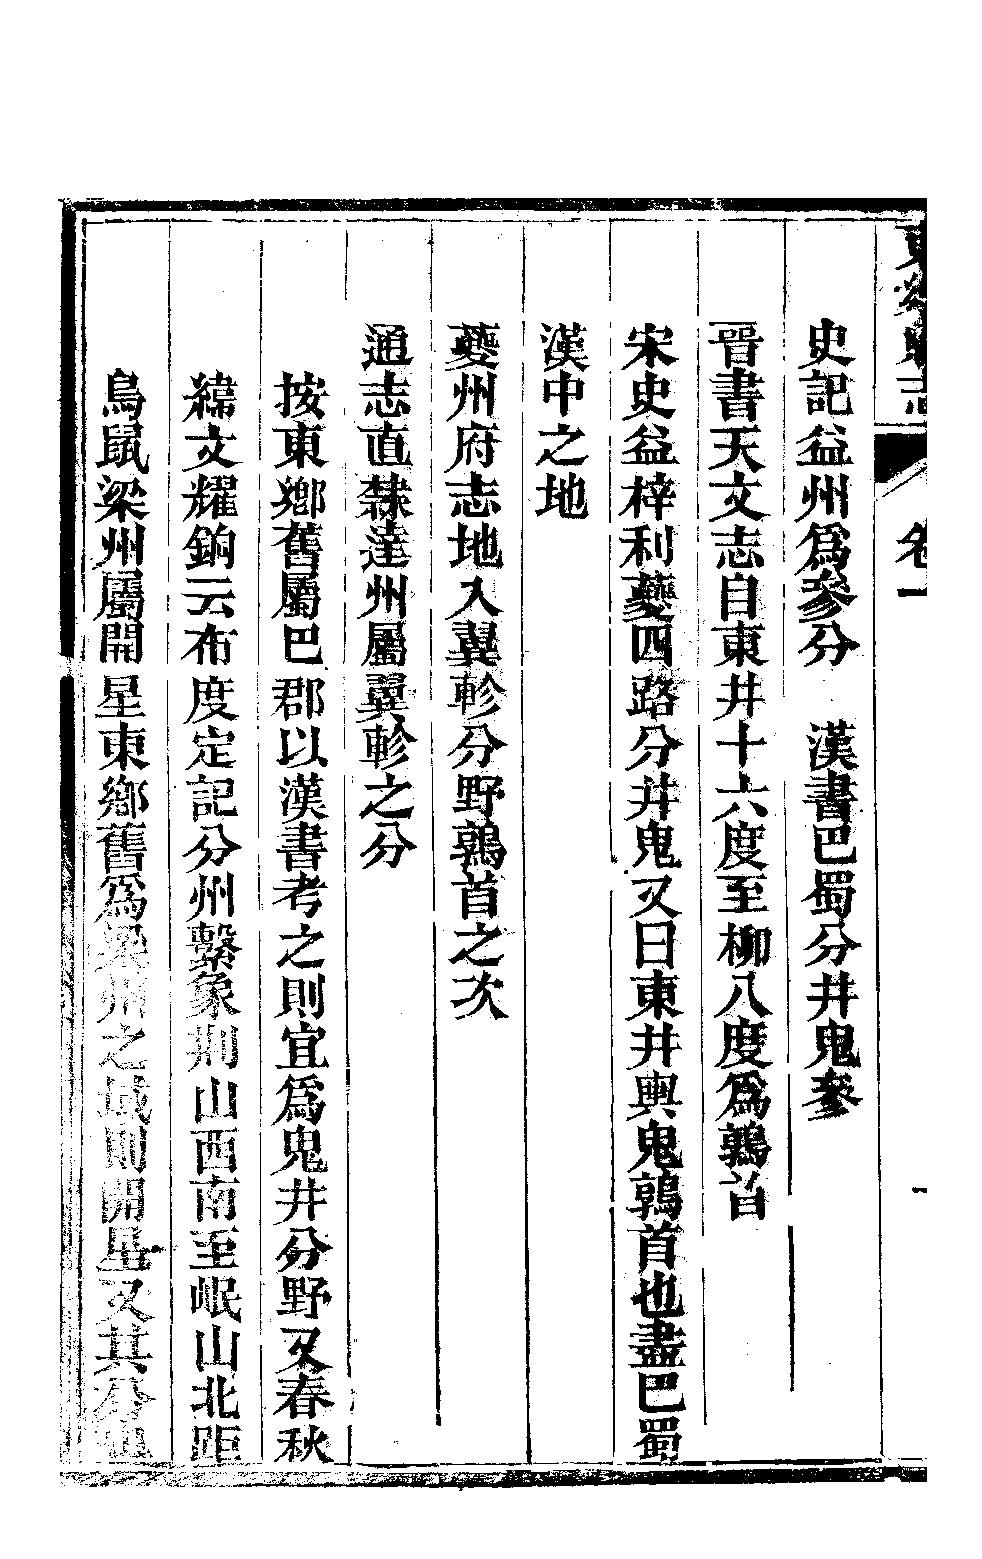 東鄉縣志 卷一 一
史記益州爲參分 漢書巴蜀分井鬼參
晉書天文志自東井十六度至柳八度爲鶉首
宋史益梓利夔四路分井鬼又曰東井輿鬼鶉首也盡巴蜀
漢中之地
夔州府志地入翼軫分野鶉首之次
通志直隸達州屬翼軫之分
按東鄉舊屬巴郡以漢書考之則宜爲鬼井分野又春秋
緯文耀鉤云布度定記分州繫象荆山西南至岷山北距
鳥鼠梁州屬開星東鄉舊爲梁州之域則開星又其分也